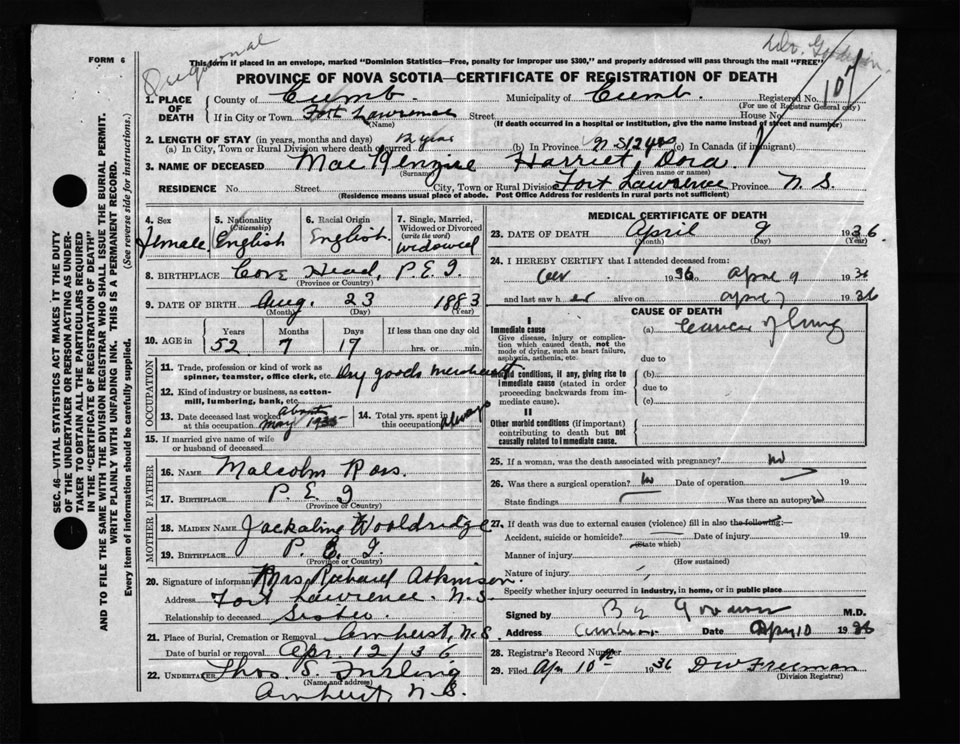 FORM 6
This form if placed in an envelope, marked "Dominion Statistics—Free, penalty for improper use $300," and properly addressed will pass through the mail "FREE"
PROVINCE OF NOVA SCOTIA—CERTIFICATE OF REGISTRATION OF DEATH
1. PLACE OF DEATH
County of Cumb. Municipality of Cumb. Registered No. 10
(For use of Registrar General only)
If in City or Town Fort Lawrence Street House No.
(Name) (If death occurred in a hospital or institution, give the name instead of street and number)
2. LENGTH OF STAY (in years, months and days)
(a) In City, Town or Rural Division where death occurred 12 years (b) In Province N.S. 12 yrs (c) In Canada (if immigrant)
3. NAME OF DECEASED MacKenzie Harriet Dora
(Surname) (Given name or names)
RESIDENCE No. Street City, Town or Rural Division Fort Lawrence Province N. S.
(Residence means usual place of abode. Post Office Address for residents in rural parts not sufficient)
SEC. 46—VITAL STATISTICS ACT MAKES IT THE DUTY
OF THE UNDERTAKER OR PERSON ACTING AS UNDERTAKER TO OBTAIN ALL THE PARTICULARS REQUIRED
IN THE "CERTIFICATE OF REGISTRATION OF DEATH"
AND TO FILE THE SAME WITH THE DIVISION REGISTRAR WHO SHALL ISSUE THE BURIAL PERMIT.
WRITE PLAINLY WITH UNFADING INK. THIS IS A PERMANENT RECORD.
Every item of information should be carefully supplied. (See reverse side for instructions.)
4. Sex Female
5. Nationality (Citizenship) English
6. Racial Origin English
7. Single, Married, Widowed or Divorced (write the word) Widowed
8. BIRTHPLACE Cove Head, P.E.I.
(Province or Country)
9. DATE OF BIRTH Aug. 23 1883
(Month) (Day) (Year)
10. AGE in Years 52 Months 7 Days 17 If less than one day old hrs. or min.
OCCUPATION
11. Trade, profession or kind of work as spinner, teamster, office clerk, etc. Dry goods merchant
12. Kind of industry or business, as cotton-mill, lumbering, bank, etc.
13. Date deceased last worked at this occupation about May 1935
14. Total yrs. spent in this occupation Always
15. If married give name of wife or husband of deceased
FATHER
16. NAME Malcolm Ross.
17. BIRTHPLACE P. E. I
(Province or Country)
MOTHER
18. MAIDEN NAME Jackaline Wooldridge
19. BIRTHPLACE P. E. I.
(Province or Country)
20. Signature of informant Mrs Richard Atkinson.
Address Fort Lawrence. N.S.
Relationship to deceased Sister.
21. Place of Burial, Cremation or Removal Amherst, N.S.
Date of burial or removal Apr. 12/36
22. UNDERTAKER Thos. S. Furling
(Name and address)
Amherst, N.S.
MEDICAL CERTIFICATE OF DEATH
23. DATE OF DEATH April 9 1936.
(Month) (Day) (Year)
24. I HEREBY CERTIFY that I attended deceased from:
1936 to April 9 1936
and last saw her alive on April 7 1936
CAUSE OF DEATH
I
Immediate cause
Give disease, injury or complication which caused death, not the mode of dying, such as heart failure, asphyxia, asthenia, etc.
(a) Cancer of Lung
due to
Morbid conditions, if any, giving rise to immediate cause (stated in order proceeding backwards from immediate cause).
(b)
due to
(c)
II
Other morbid conditions (if important) contributing to death but not causally related to immediate cause.
25. If a woman, was the death associated with pregnancy? no
26. Was there a surgical operation? no Date of operation 19
State findings Was there an autopsy? no
27. If death was due to external causes (violence) fill in also the following:—
Accident, suicide or homicide? Date of injury 19
(State which)
Manner of injury
(How sustained)
Nature of injury
Specify whether injury occurred in industry, in home, or in public place
Signed by M.D.
Address Date Apr 10 1936
28. Registrar's Record Number
29. Filed Apr 10th 1936 D W Freeman
(Division Registrar)